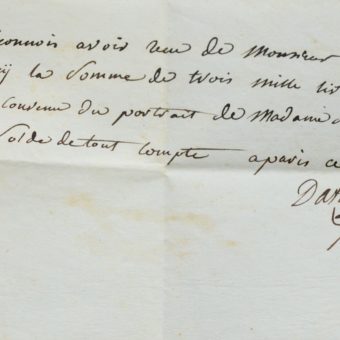 connois avoir reu de Monsieur
ij la Somme de trois mille liv
convenu du portrait de Madame
Solde de tout Compte a paris ce
Dav